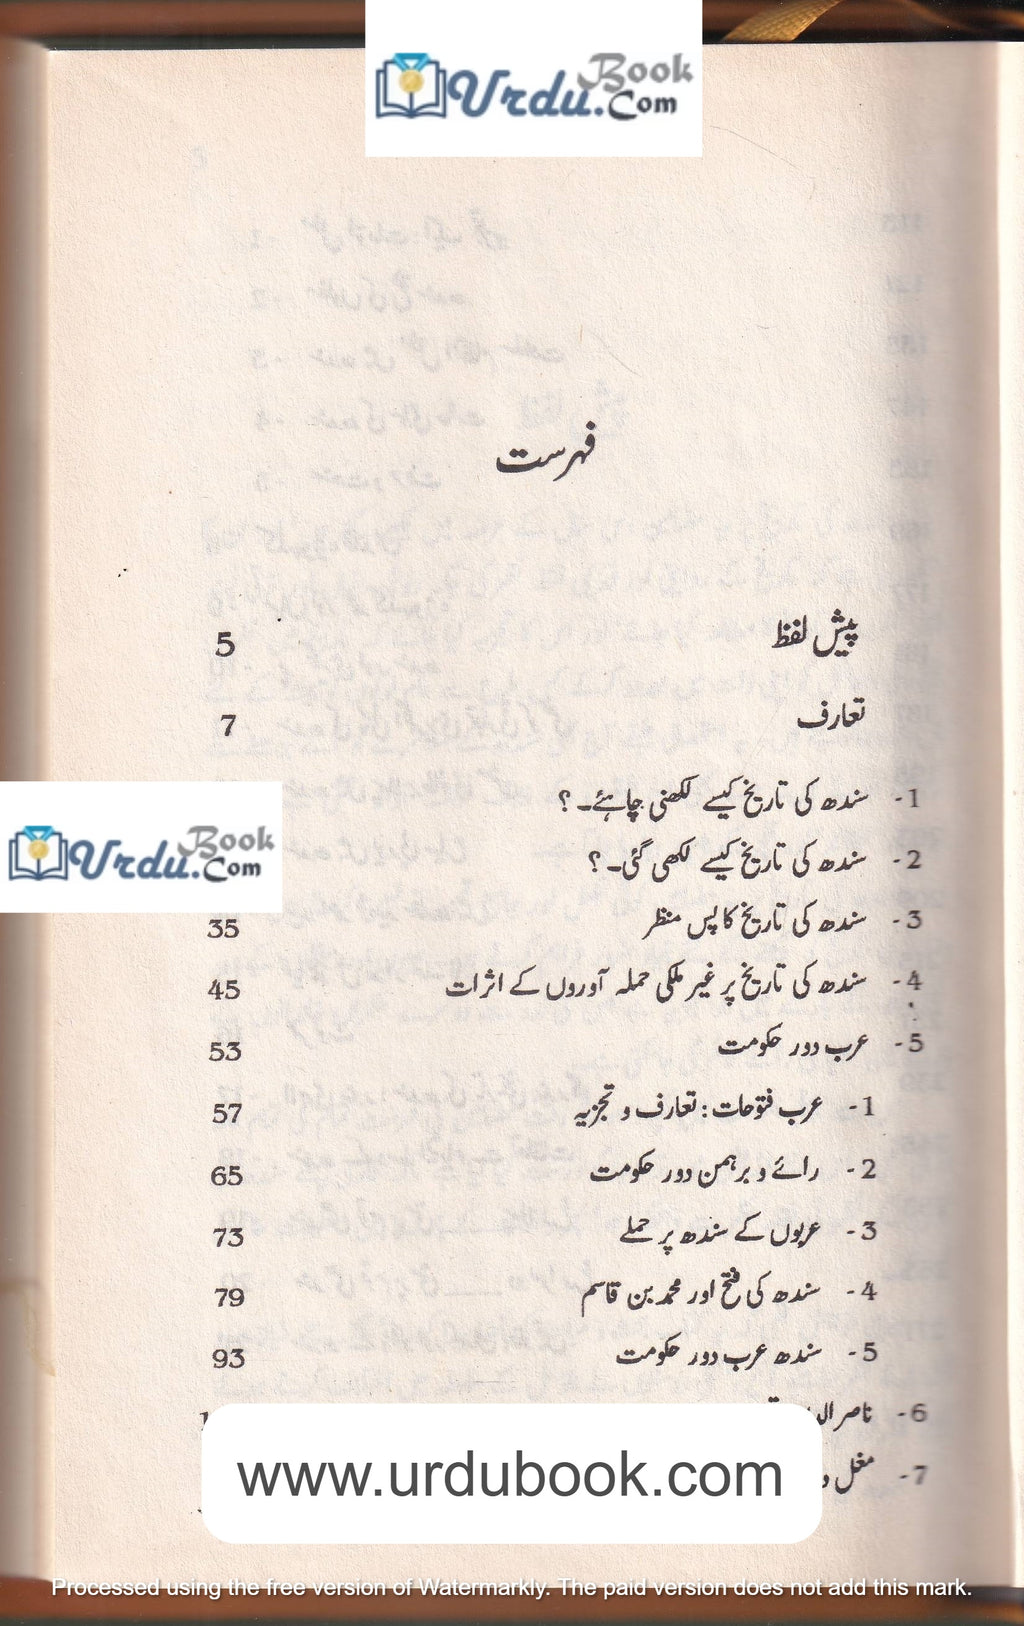 Urdu Book .Com
فہرست
پیش لفظ 5
تعارف 7
1- سندھ کی تاریخ کیسے لکھنی چاہئے۔ ؟
2- سندھ کی تاریخ کیسے لکھی گئی۔ ؟
Urdu Book .Com
3- سندھ کی تاریخ کا پس منظر 35
4- سندھ کی تاریخ پر غیر ملکی حملہ آوروں کے اثرات 45
5- عرب دور حکومت 53
1- عرب فتوحات : تعارف و تجزیہ 57
2- رائے و برہمن دور حکومت 65
3- عربوں کے سندھ پر حملے 73
4- سندھ کی فتح اور محمد بن قاسم 79
5- سندھ عرب دور حکومت 93
6- ناصر
7- مغل
www.urdubook.com
Processed using the free version of Watermarkly. The paid version does not add this mark.